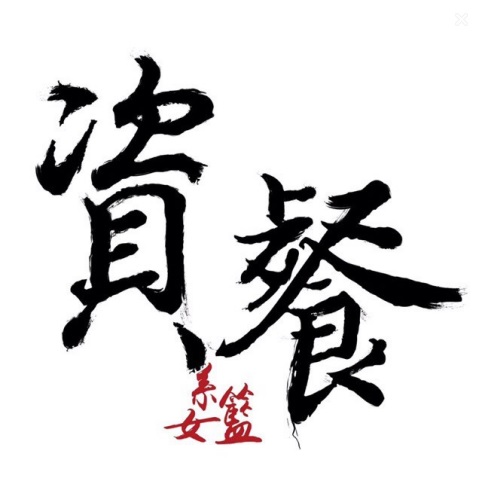 資餐
系女籃